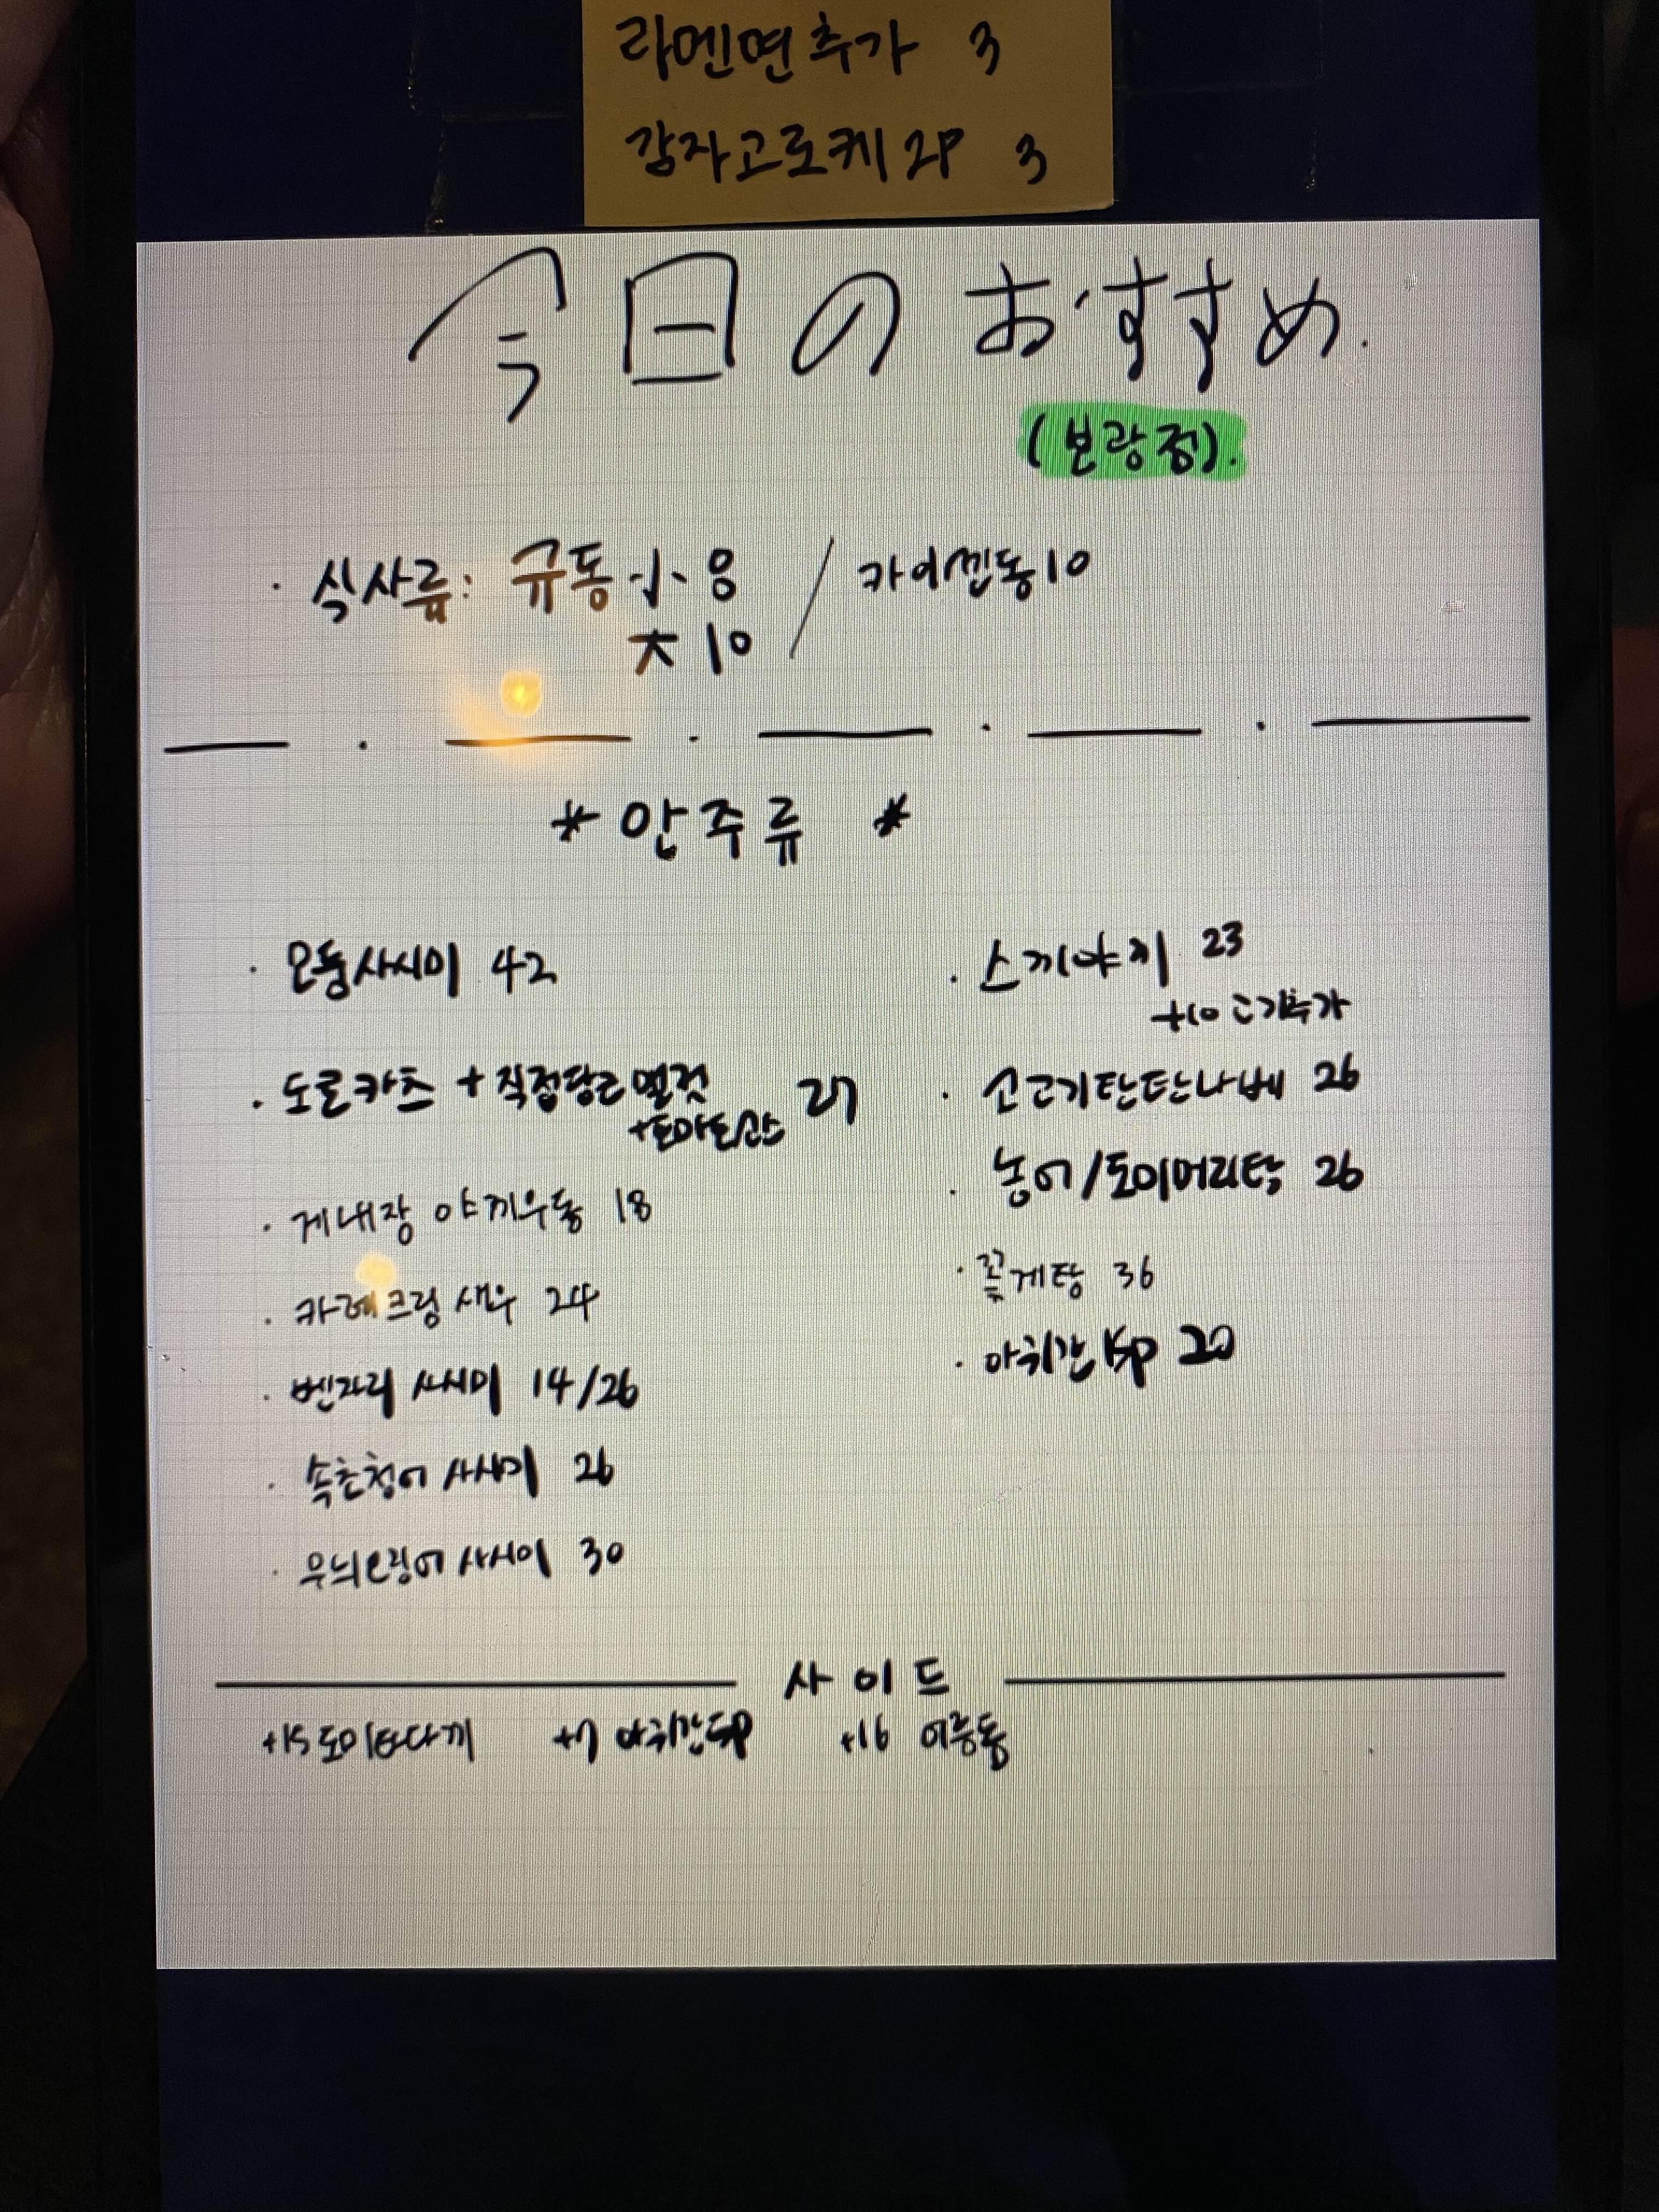 라멘면추가 3
감자고로케 2P 3
今日のおすすめ.
(본광정).
· 식사류: 규동 小 8 / 카이센동 10
大 10
* 안주류 *
· 모둠사시미 42
· 도로카츠 + 직접담근 멜젓 27
+토마토살사
· 게내장 야끼우동 18
· 카레크림 새우 24
· 벤자리 사시미 14/26
· 속초청어 사시미 26
· 무늬오징어 사시미 30
· 스끼야끼 23
+10 고기추가
· 소고기탄탄나베 26
· 농어/도미머리탕 26
· 꽃게탕 36
· 아귀간 20
사이드
+15 도미타다끼 +7 아귀간 +16 이중동